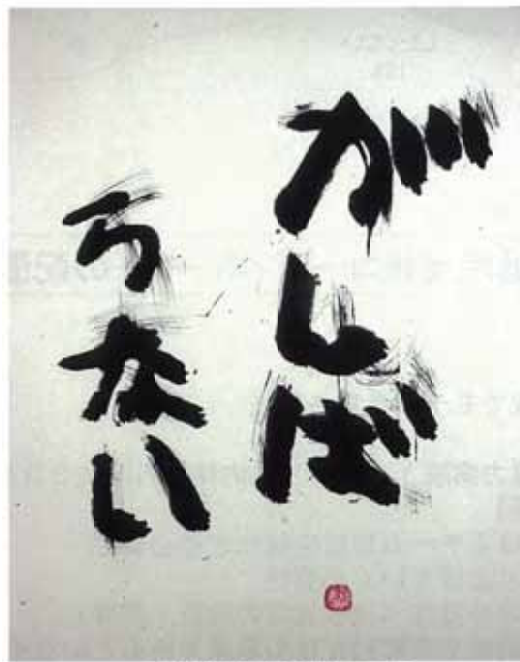 がんば
らない